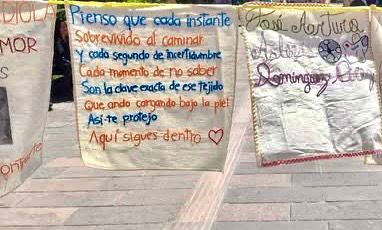 DIOLA
AMOR
Pienso que cada instante
Sobrevivido al caminar
Y cada segundo de incertidumbre
Cada momento de no saber
Son la clave exacta de ese tejido
Que ando cargando bajo la piel
Así te protejo
Aquí sigues dentro ♡
José Arturo
Domínguez